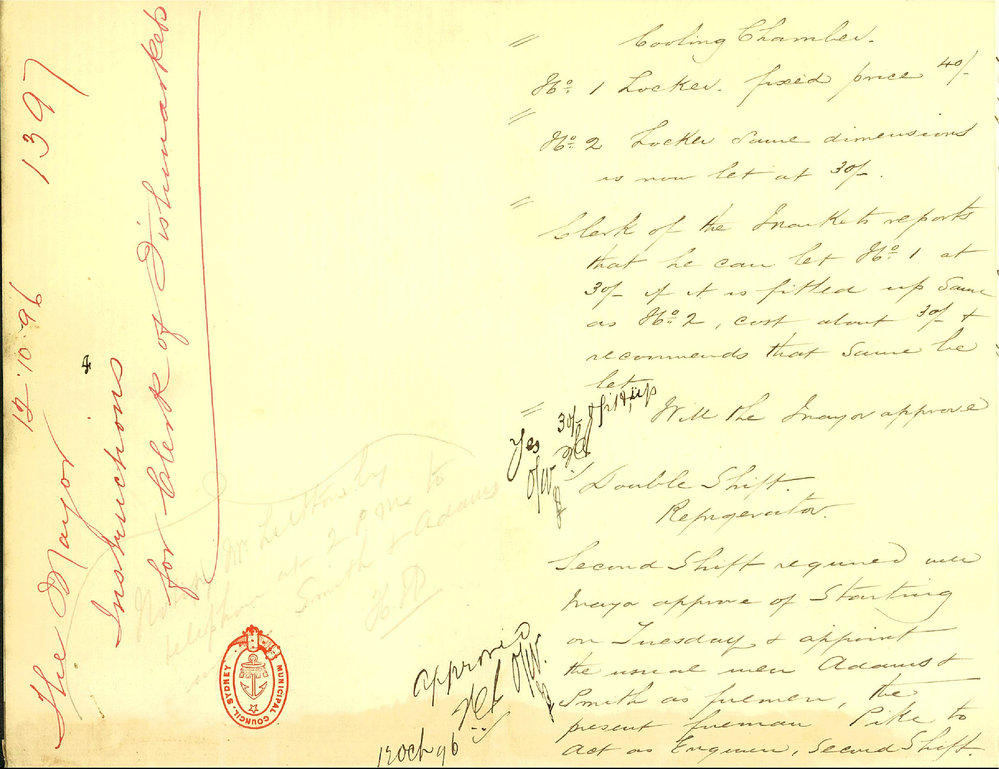 The Mayor
12.10.96 1397
Instructions
for Clerk of Fishmarkets
Cooling Chamber.
No. 1 Locker. fixed price 40/-
No. 2 Locker Same dimensions
is now let at 30/-.
Clerk of the Markets reports
that he can let No. 1 at
30/- if it is fitted up Same
as No. 2, cost about 30/- &
recommends that Same be
let
Will the Mayor approve
Yes 30/- & fit it up
Double Shift.
Refrigerator.
Second Shift required will
Mayor approve of Starting
on Tuesday, & appoint
the usual men Adams &
Smith as firemen, the
present fireman Pike to
Act as Engineer, Second Shift.
approved
12 Oct 96
telephone at 2 pm to
Smith & Adams
MUNICIPAL COUNCIL, SYDNEY